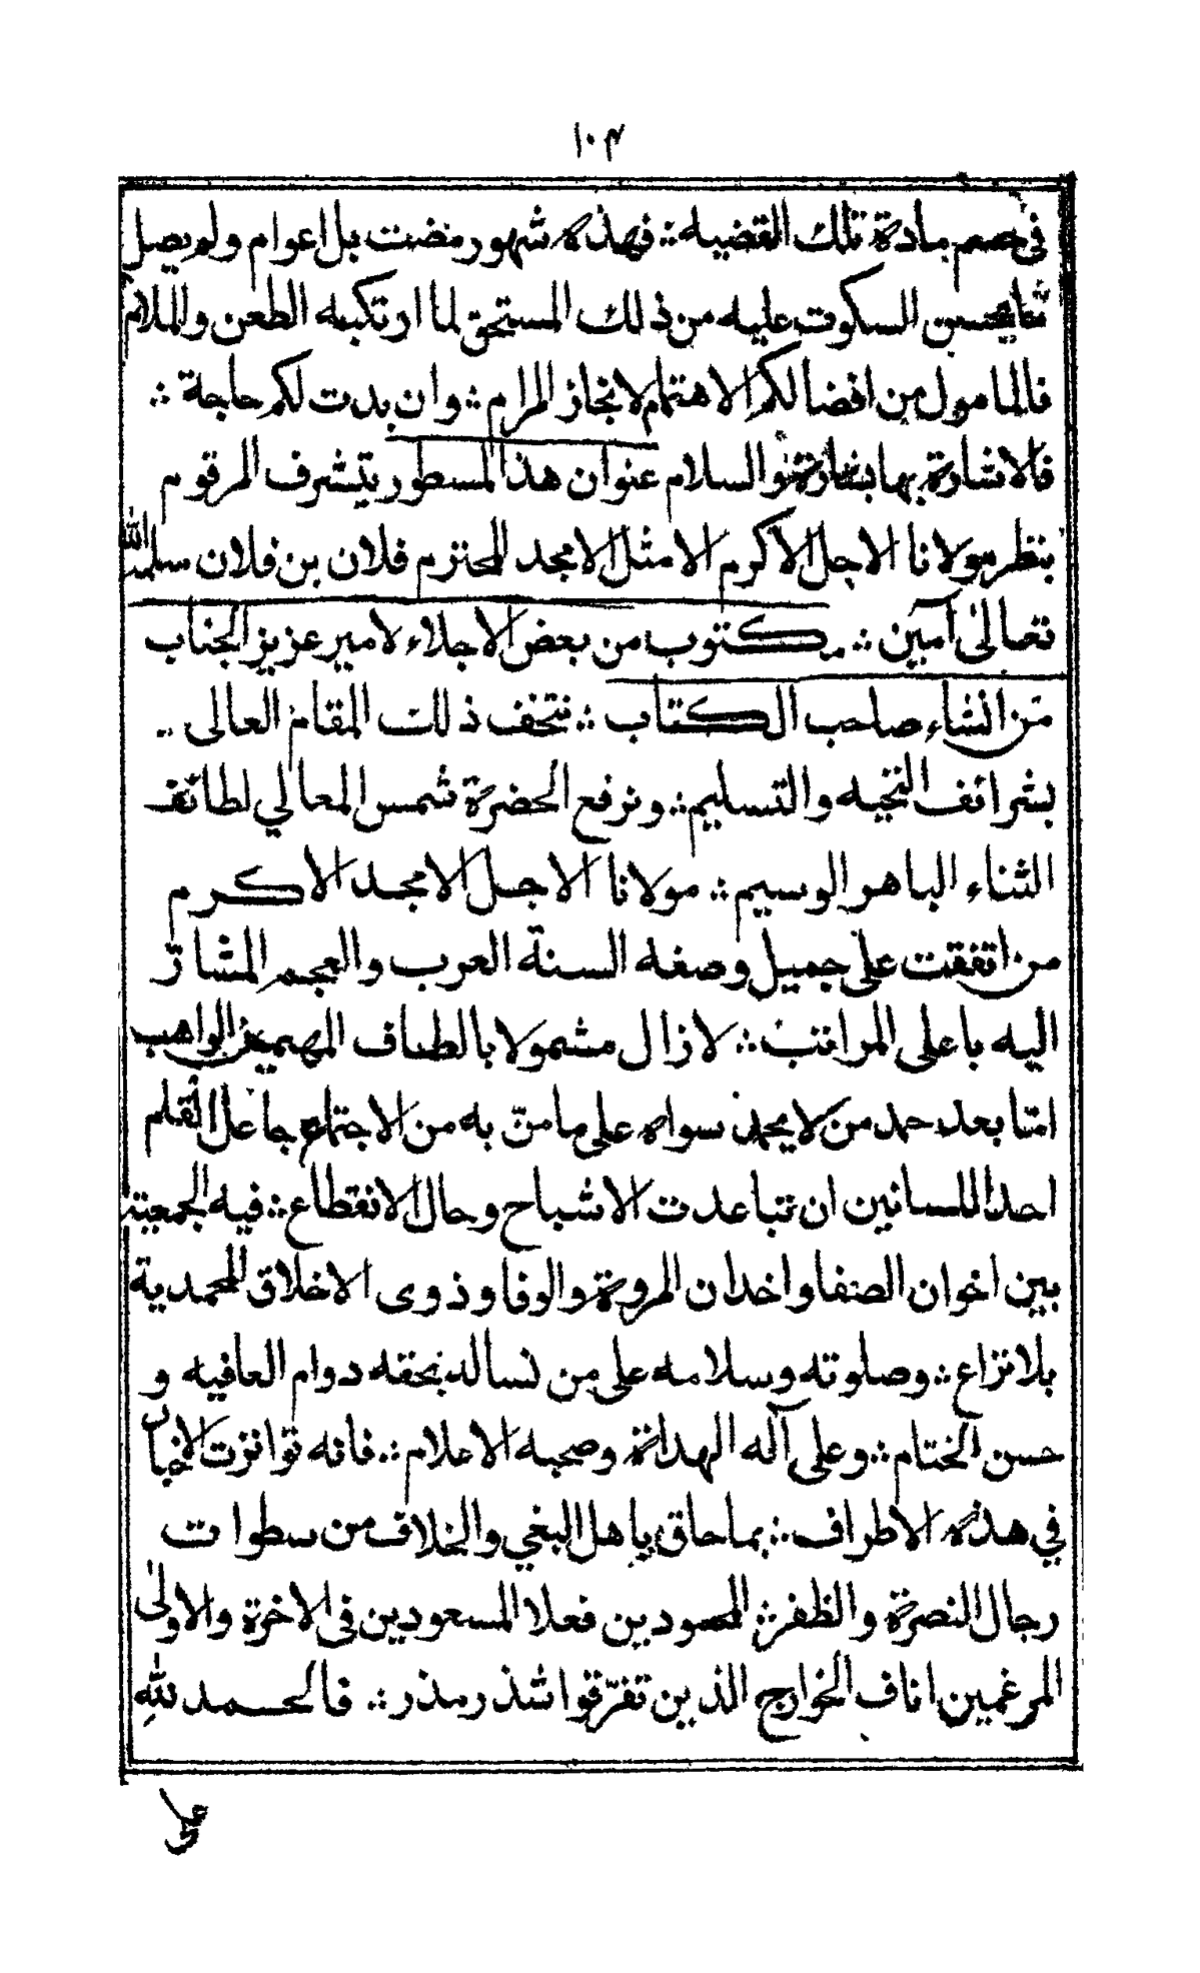 ١٠٣
في حسم مادة تلك القضيه ؞ فهذه شهور مضت بل اعوام ولم يصل
ما يحسن السكوت عليه من ذلك المستحق لما ارتكبه الطعن والملام
فالمامول من افضالكم الاهتمام لانجاز المرام ؞ وان بدت لكم حاجة ؞
فالاشارة بها بشارة والسلام عنوان هذا المسطور يتشرف المرقوم
بنظر مولانا الاجل الاكرم الامثل الامجد المحترم فلان بن فلان سلمه الله
تعالى آمين ؞ مكتوب من بعض الاجلاء لامير عزيز الجناب
من انشاء صاحب الكتاب ؞ نتحف ذلك المقام العالى
بشرائف التحيه والتسليم ؞ ونرفع الحضرة شمس المعالي لطائف
الثناء الباهر الوسيم ؞ مولانا الاجل الامجد الاكرم
من اتفقت على جميل وصفه السنة العرب والعجم المشار
اليه باعلى المراتب ؞ لازال مشمولا بالطاف المهيمن الواهب
امّا بعد حمد من لا يحمد سواه على ما منّ به من الاجتماع جاعل القلم
احد اللسانين ان تباعدت الاشباح وحال الانقطاع ؞ فيه الجمعية
بين اخوان الصفا واخدان المروة والوفا وذوى الاخلاق المحمدية
بلا نزاع ؞ وصلوته وسلامه على من نساله بحقه دوام العافيه و
حسن الختام ؞ وعلى آله الهداة وصحبه الاعلام ؞ فانه تواترت الاخبار
في هذه الاطراف ؞ بما حاق باهل البغي والخلاف من سطوات
رجال النصرة والظفر ؞ المحمودين فعلا المسعودين فى الاخرة والاولى
المرغمين اناف الخوارج الذين تفرّقوا شذر مذر ؞ فالحمد لله
على